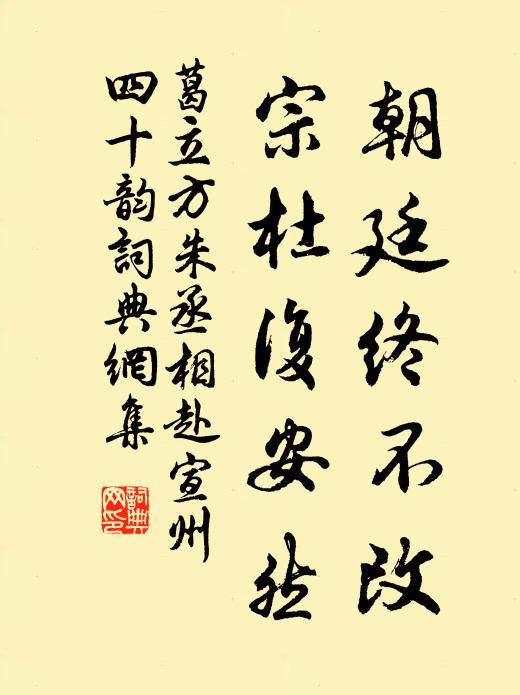 朝廷終不改
宗杜復安然
葛立方朱丞相赴宣州
四十韵詞典網集
詞典
网印